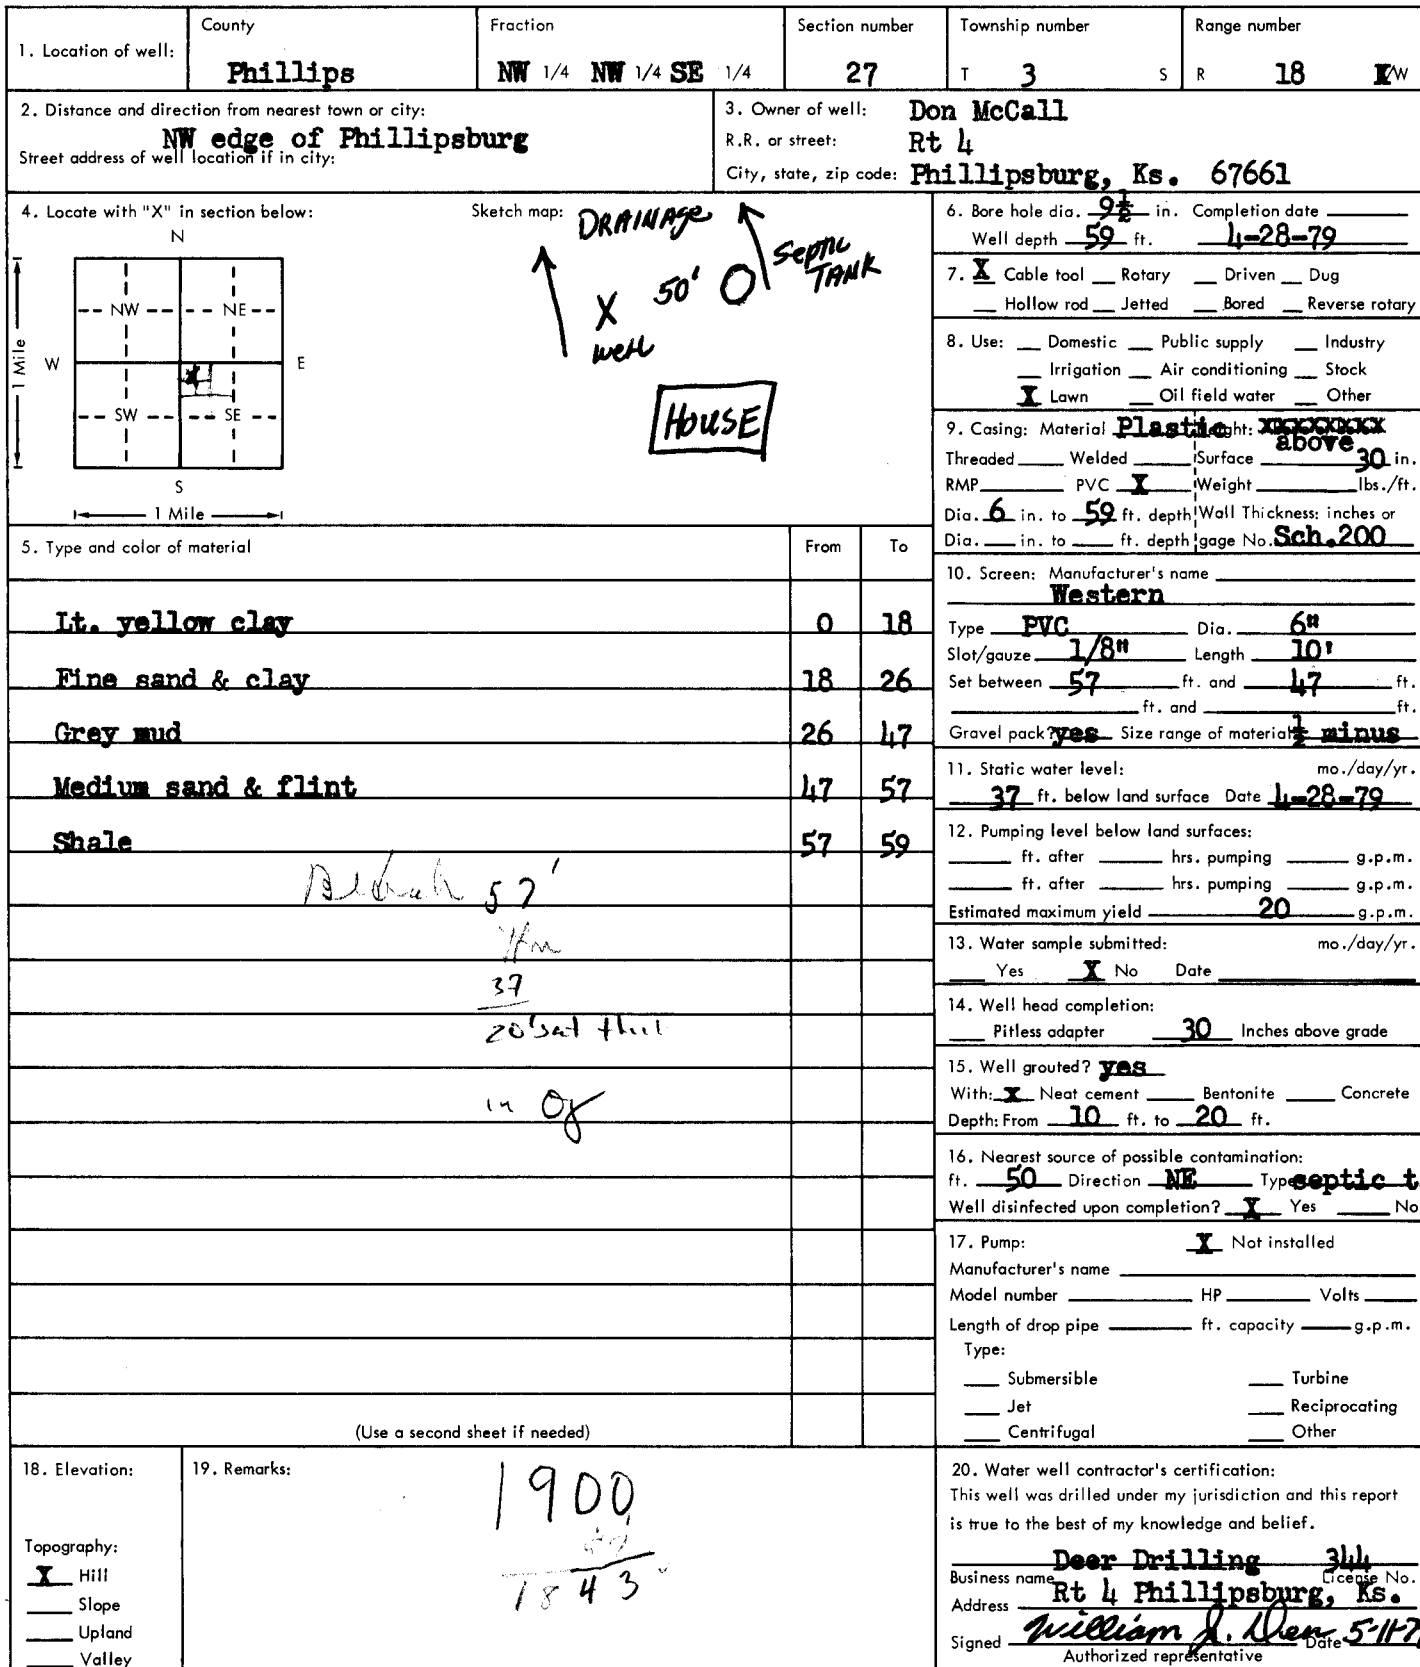 1. Location of well:
County
Phillips
Fraction
NW 1/4 NW 1/4 SE 1/4
Section number
27
Township number
T 3 S
Range number
R 18 E/W
2. Distance and direction from nearest town or city:
NW edge of Phillipsburg
Street address of well location if in city:
3. Owner of well: Don McCall
R.R. or street: Rt 4
City, state, zip code: Phillipsburg, Ks. 67661
4. Locate with "X" in section below:
N
NW NE
W E
X
SW SE
S
1 Mile
1 Mile
Sketch map:
DRAINAGE
Septic TANK
X 50'
well
HOUSE
5. Type and color of material From To
Lt. yellow clay 0 18
Fine sand & clay 18 26
Grey mud 26 47
Medium sand & flint 47 57
Shale 57 59
57'
37
20' sat
in
(Use a second sheet if needed)
6. Bore hole dia. 9½ in. Completion date
Well depth 59 ft. 4-28-79
7. X Cable tool __ Rotary __ Driven __ Dug
__ Hollow rod __ Jetted __ Bored __ Reverse rotary
8. Use: __ Domestic __ Public supply __ Industry
__ Irrigation __ Air conditioning __ Stock
X Lawn __ Oil field water __ Other
9. Casing: Material Plastic Height: XXXXXXXX
above
Threaded ___ Welded ___ Surface 30 in.
RMP ___ PVC X Weight ___ lbs./ft.
Dia. 6 in. to 59 ft. depth Wall Thickness: inches or
Dia. __ in. to __ ft. depth gage No. Sch.200
10. Screen: Manufacturer's name
Western
Type PVC Dia. 6"
Slot/gauze 1/8" Length 10'
Set between 57 ft. and 47 ft.
___ ft. and ___ ft.
Gravel pack? yes Size range of material ½ minus
11. Static water level: mo./day/yr.
37 ft. below land surface Date 4-28-79
12. Pumping level below land surfaces:
___ ft. after ___ hrs. pumping ___ g.p.m.
___ ft. after ___ hrs. pumping ___ g.p.m.
Estimated maximum yield 20 g.p.m.
13. Water sample submitted: mo./day/yr.
__ Yes X No Date ___
14. Well head completion:
__ Pitless adapter 30 Inches above grade
15. Well grouted? yes
With: X Neat cement __ Bentonite __ Concrete
Depth: From 10 ft. to 20 ft.
16. Nearest source of possible contamination:
ft. 50 Direction NE Type septic t
Well disinfected upon completion? X Yes __ No
17. Pump: X Not installed
Manufacturer's name ___
Model number ___ HP ___ Volts ___
Length of drop pipe ___ ft. capacity ___ g.p.m.
Type:
__ Submersible __ Turbine
__ Jet __ Reciprocating
__ Centrifugal __ Other
18. Elevation:
Topography:
X Hill
__ Slope
__ Upland
__ Valley
19. Remarks:
1900
1843
20. Water well contractor's certification:
This well was drilled under my jurisdiction and this report
is true to the best of my knowledge and belief.
Deer Drilling 344
Business name License No.
Address Rt 4 Phillipsburg, Ks.
Signed William Date 5-11-7
Authorized representative